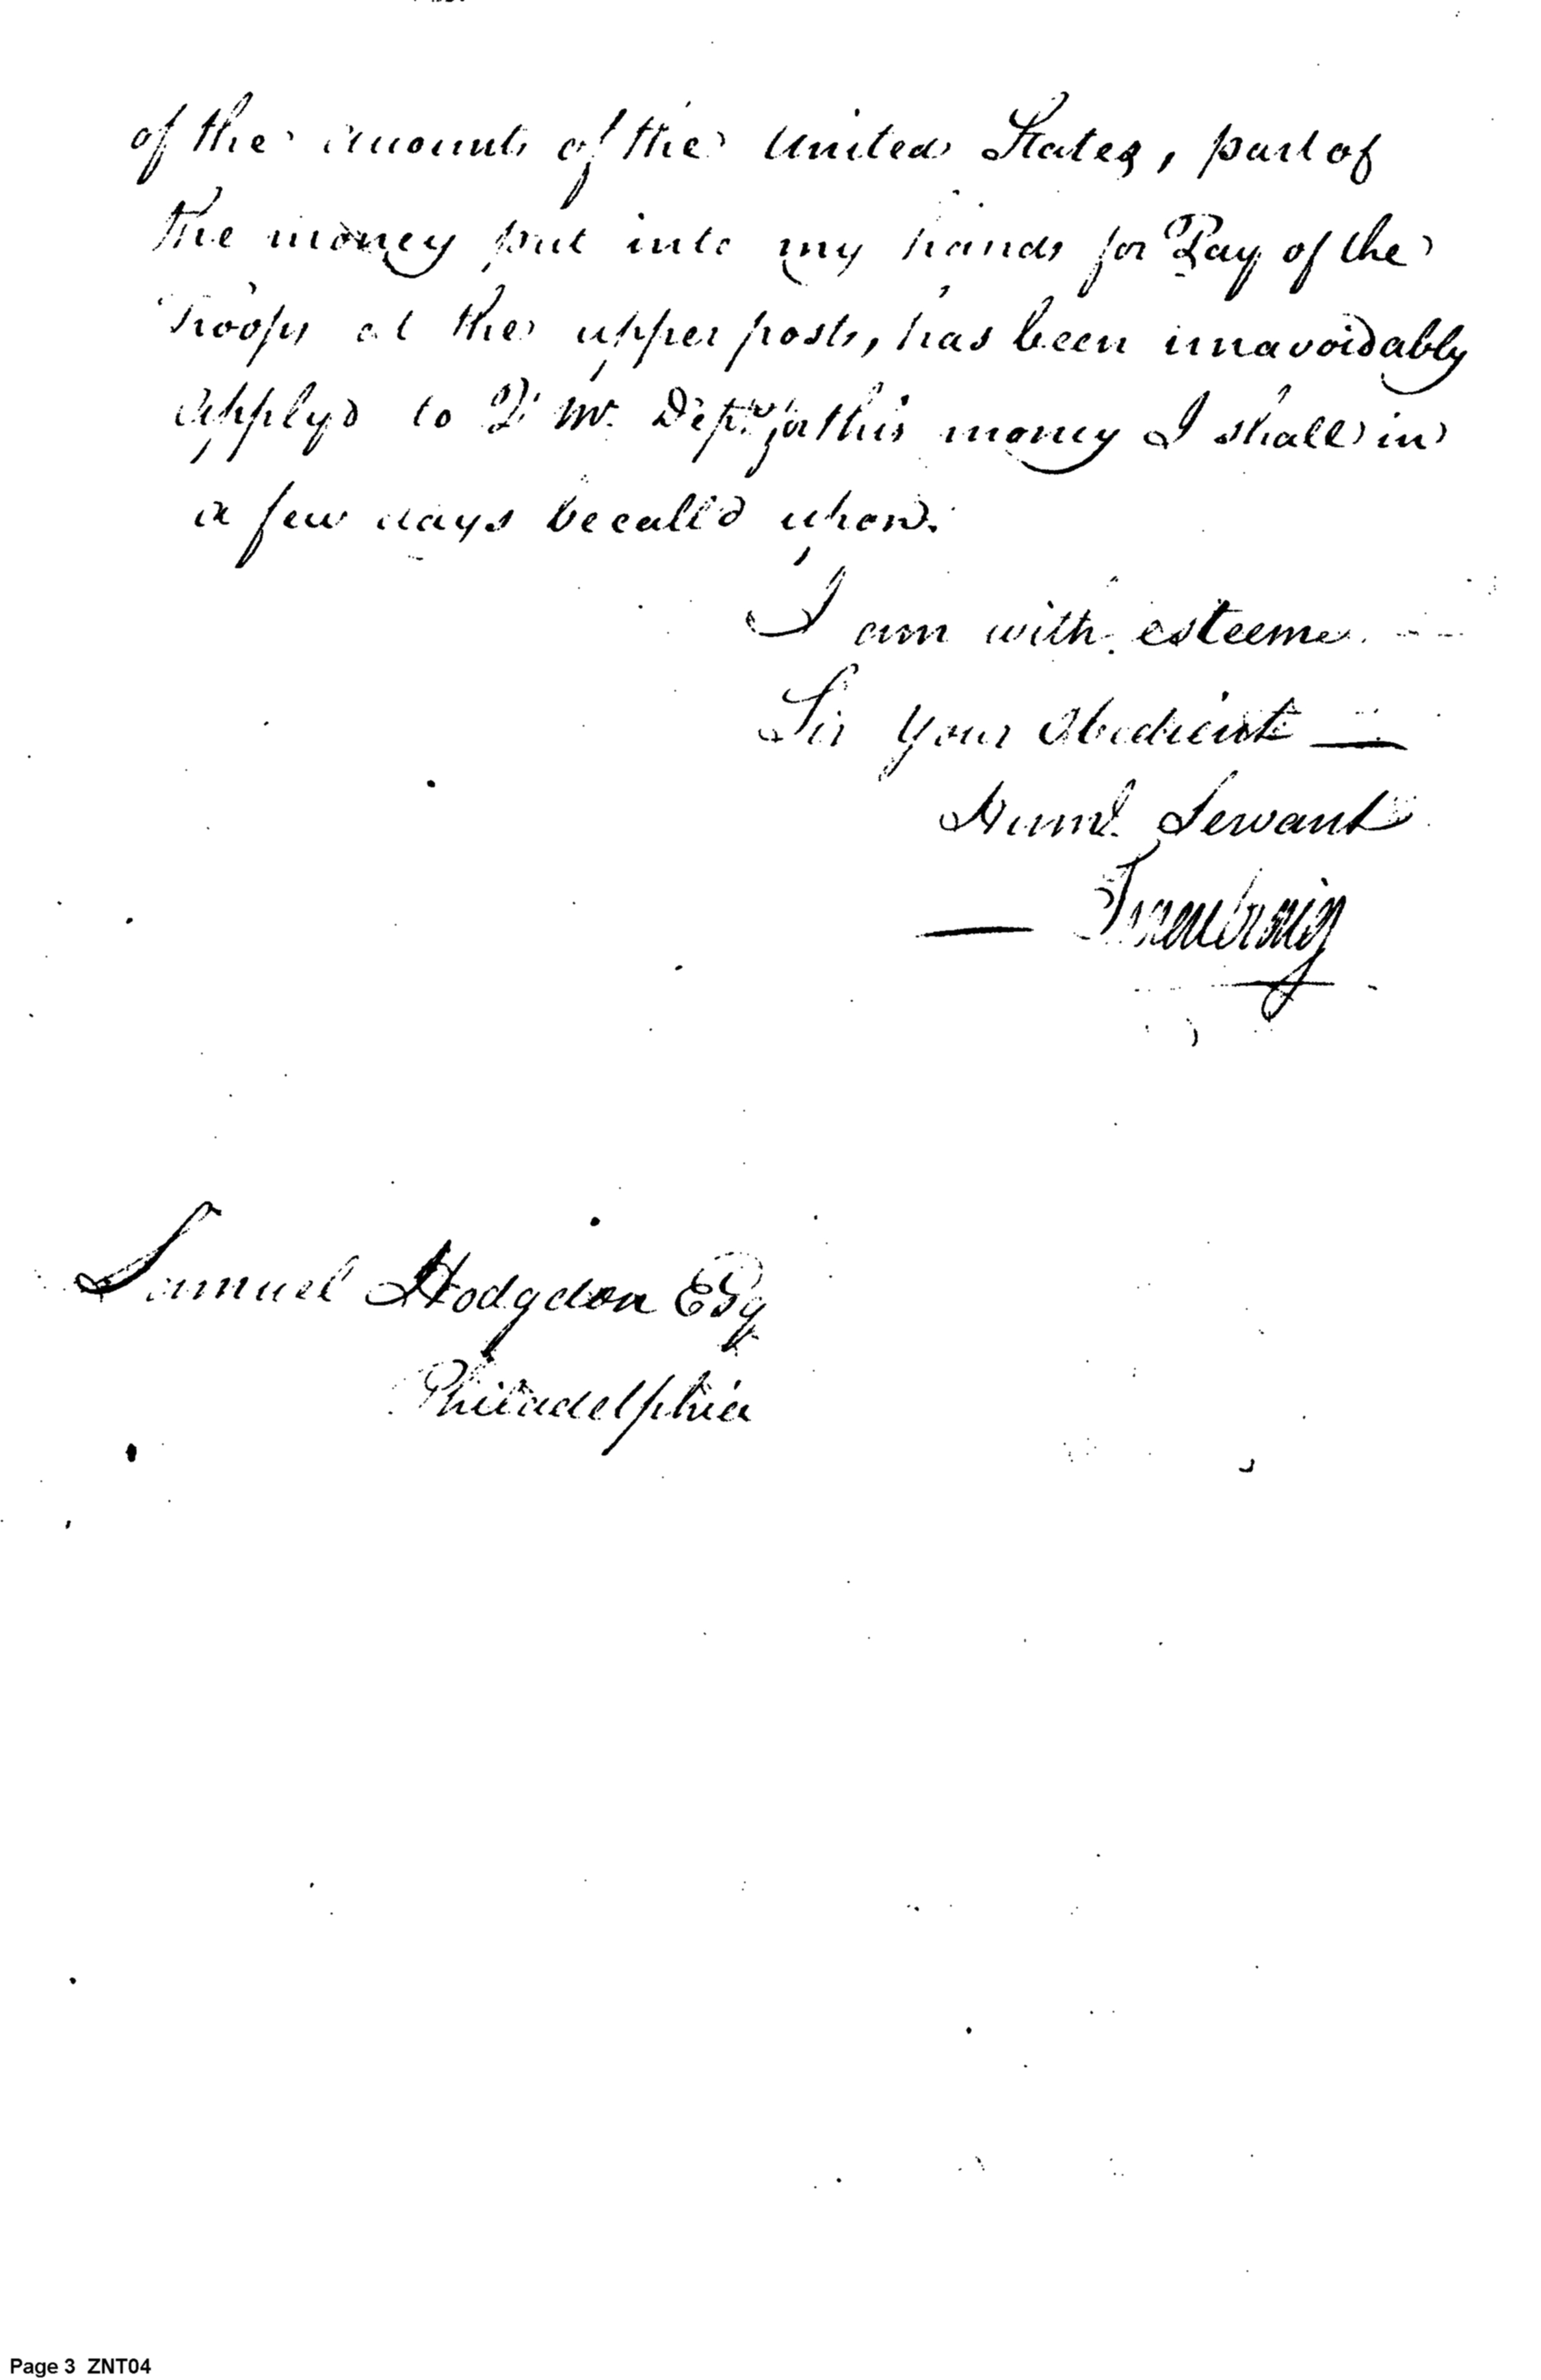 of the accounts of the United States, part of
the money put into my hands for Pay of the
Troops at the upper posts, has been unavoidably
applyd to Q. M. Dept. for this money I shall in
a few days be call'd upon.
I am with esteeme
Sir your Obedient —
Huml. Servant
Samuel Hodgdon Esq
Philadelphia
Page 3 ZNT04